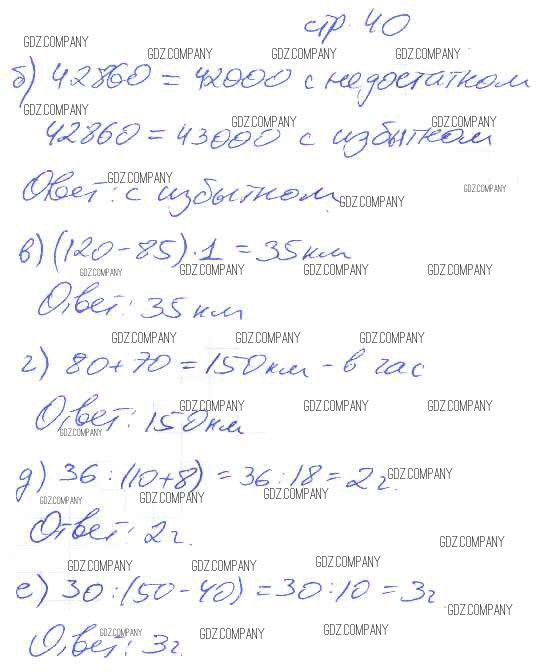 стр. 40
б) 42860 = 42000 с недостатком
42860 = 43000 с избытком
Ответ: с избытком
в) (120 - 85) · 1 = 35 км
Ответ: 35 км
г) 80 + 70 = 150 км - в час
Ответ: 150 км
д) 36 : (10 + 8) = 36 : 18 = 2 ч.
Ответ: 2 ч.
е) 30 : (50 - 40) = 30 : 10 = 3 ч
Ответ: 3 ч.
GDZ.COMPANY
GDZ.COMPANY GDZ.COMPANY GDZ.COMPANY
GDZ.COMPANY
GDZ.COMPANY GDZ.COMPANY
GDZ.COMPANY
GDZ.COMPANY GDZ.COMPANY
GDZ.COMPANY GDZ.COMPANY GDZ.COMPANY GDZ.COMPANY
GDZ.COMPANY GDZ.COMPANY GDZ.COMPANY
GDZ.COMPANY GDZ.COMPANY GDZ.COMPANY
GDZ.COMPANY
GDZ.COMPANY
GDZ.COMPANY GDZ.COMPANY GDZ.COMPANY
GDZ.COMPANY
GDZ.COMPANY GDZ.COMPANY GDZ.COMPANY
GDZ.COMPANY
GDZ.COMPANY GDZ.COMPANY GDZ.COMPANY